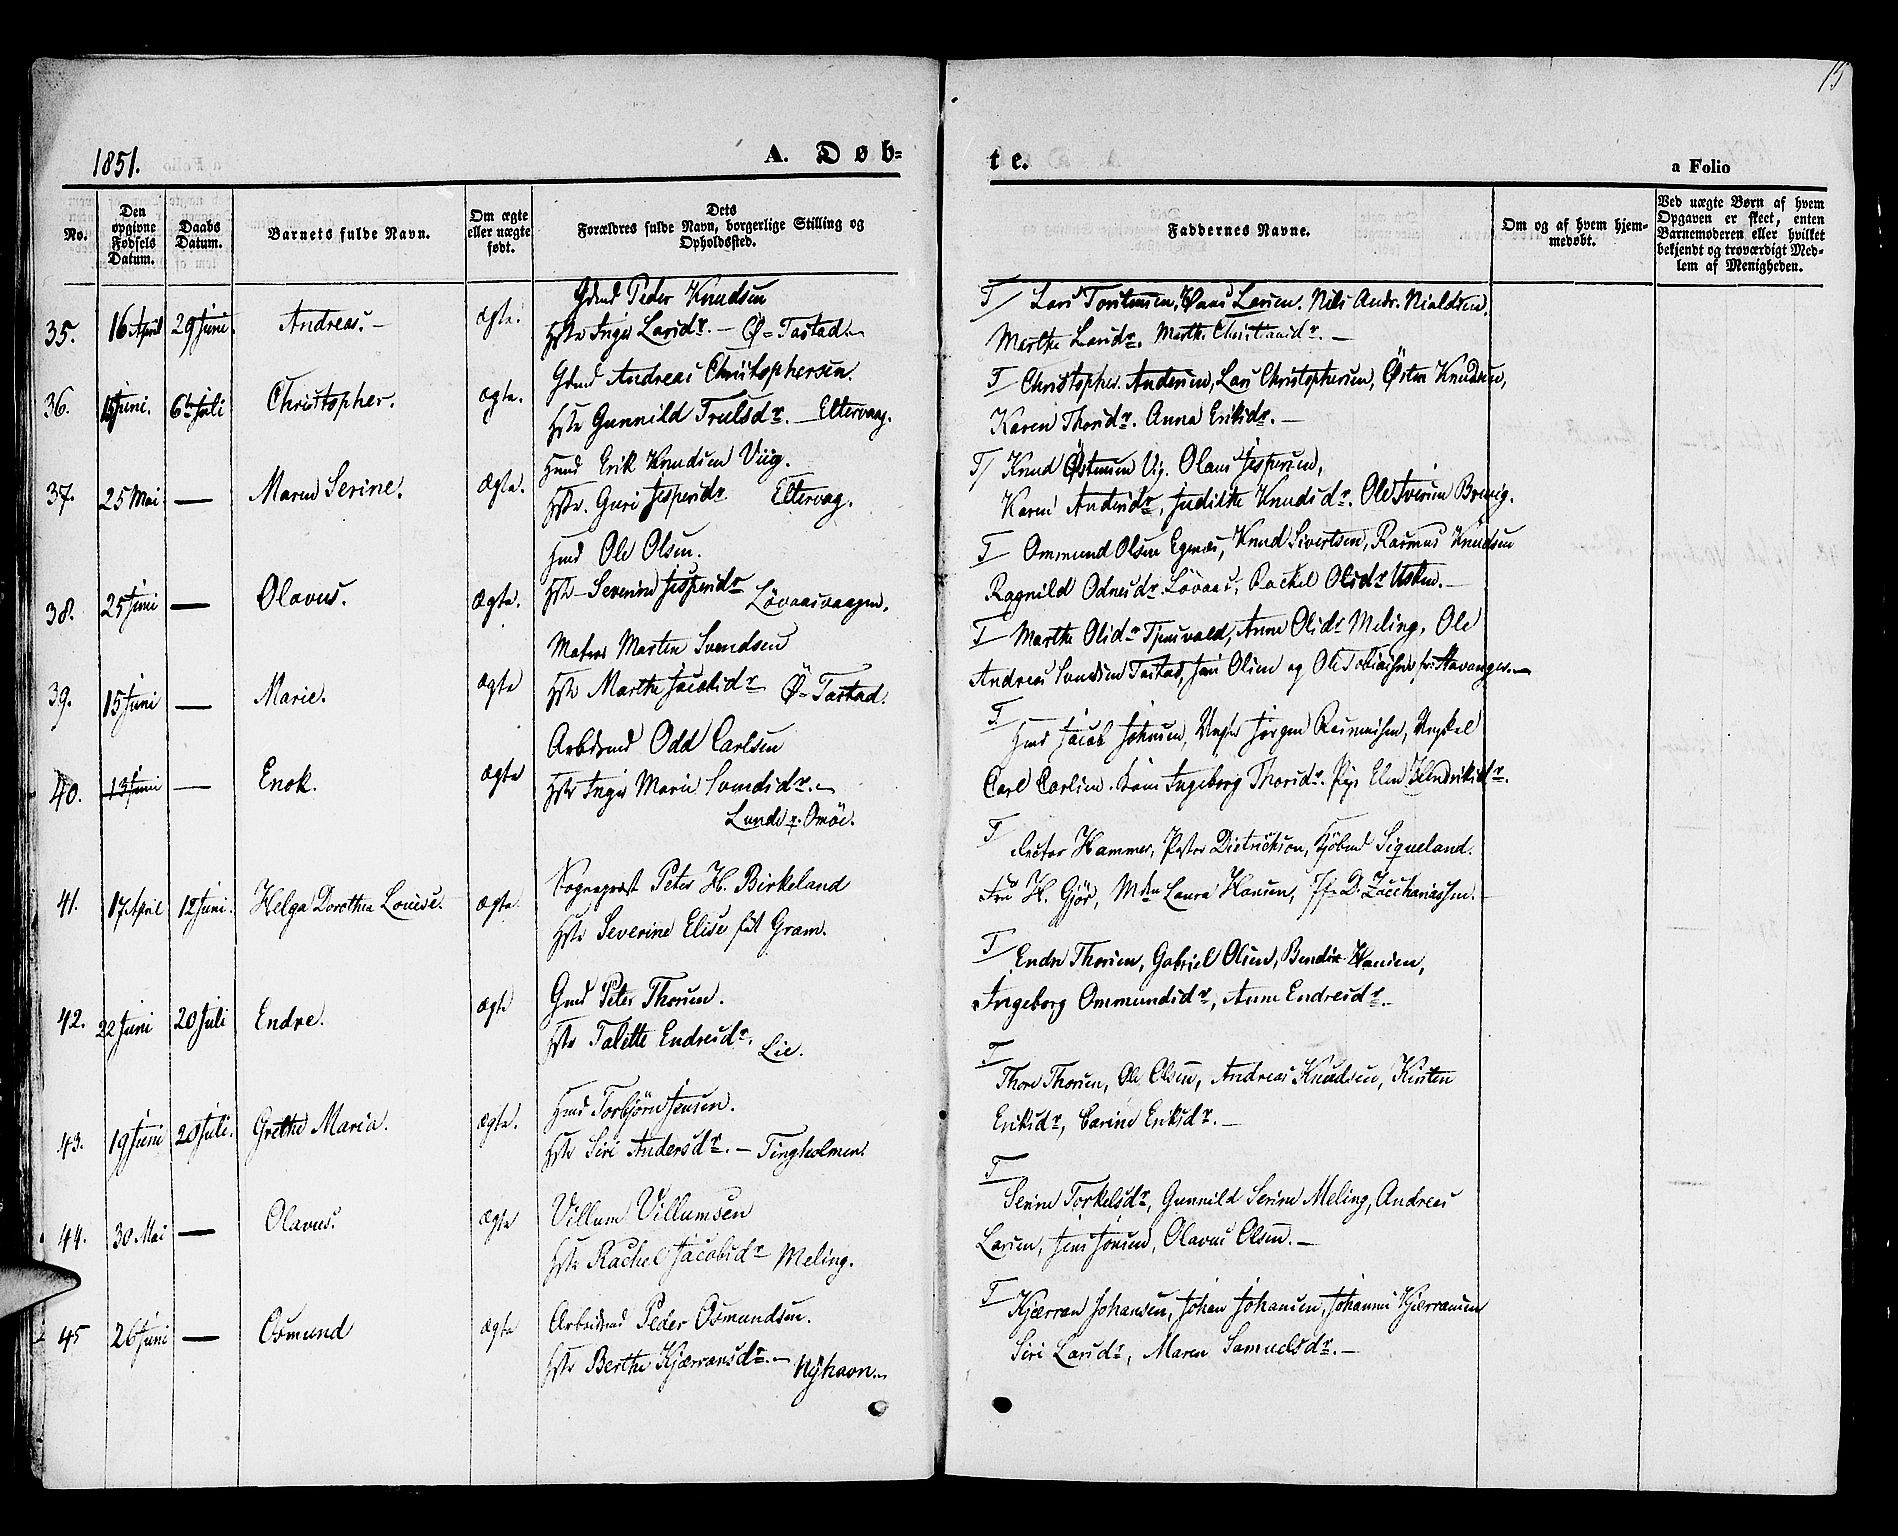 15
1851.
A. Døb=
te.
a Folio
No.
Den opgivne Fødsels Datum.
Daabs Datum.
Barnets fulde Navn.
Om ægte eller uægte født.
Dets Forældres fulde Navn, borgerlige Stilling og Opholdssted.
Faddernes Navne.
Om og af hvem hjemmedøbt.
Ved uægte Børn af hvem Opgaven er skeet, enten Barnemoderen eller hvilket bekjendt og troværdigt Medlem af Menigheden.
35. 16 April 29 Juni. Andreas. – ægte.
Gdmd Peder Knudsen
Hstr Inger Larsdr. – Ø-Tastad. –
F/ Lars Torstensen, Larsen. Nils Andr. Nialdsen.
Marthe Larsdr. Marth. Christiansdr. –
36. Juni. 6te Juli Christopher. ægte.
Gdmd Andreas Christophersen.
Hstr Gunnild Trulsdr. – Eltervaag.
F Christopher Andersen, Lars Christophersen, Østen Knudsen,
Karen Thorsdr. Anna Eriksdr. –
37. 25 Mai — Maren Serine. ægte.
Hmd Erik Knudsen Viig.
Hstr. Guri Jespersdr Eltervag.
F/ Knud Østensen Vig. Olaus Jespersen,
Karen Andersdr, Judithe Knudsdr. Ole Iversen
38. 25 Juni — Olavus. ægte.
Hmd Ole Olsen.
Hstr – Severine Jespersdr Lövaasvaagen.
F Ommund Olsen Egenæs, Knud Sivertsen, Rasmus Knudsen
Ragnild Odnesdr Lövaas, Rachel Olsdr Usken. –
39. 15 Juni — Marie. ægte
Matros Marten Svendsen
Hstr Marthe Jacobsdr Ø-Tastad.
F Marthe Olsdr Tjensvold, Anne Olsdr Meling, Ole
Andreas Svendsen Tastad, Jan Olsen og Ole Tobiassen fr: Stavanger. –
40. 13 Juni — Enok. ægte
Arbdsmd Odd Carlsen
Hstr Inger Marie Svendsdr. –
Lunde p. Omöe.
F Hmd Jacob Johnsen, Ungkr Jørgen Rasmussen, Ungkal
Carl Carlsen. Kone Ingeborg Thorsdr. Pige Elen Hendriksdr.
41. 17 April 12 Juni. Helga Dorothea Louise. ægte
Sognepræst Peter H. Birkeland
Hstr Severine Elise föt Gram.
F Rector Hammer, Pastor Dietrichson, Kjöbmd Siqueland.
Fru H. Gjör, Mdm Laura Hansen, Jfr D. Zacchariassen. –
42. 22 Juni 20 Juli Endre. ægte
Gmd Peter Thorsen.
Hstr Talette Endresdr. Lie.
F Endre Thorsen, Gabriel Olsen, Bendix Hansen,
Ingeborg Ommundsdr, Anne Endresdr. –
43. 19 Juni 20 Juli. Grethe Maria. ægte.
Hmd Torbjörn Jensen.
Hstr Siri Andersdr. – Tingholmen.
F Thore Thorsen, Ole Olsen, Andreas Knudsen, Kirsten
Eriksdr, Carine Eriksdr. –
44. 30 Mai — Olavus. ægte
Villum Villumsen
Hstr Rachel Jacobsdr Meling.
F Serine Torkelsdr, Gunnild Serine Meling, Andreas
Larsen, Jens Jonsen, Olavus Olsen. –
45 26 Juni — Osmund ægte
Arbeidsmd Peder Osmundsen.
Hstr Berthe Kjærransdr. – Nyhavn. –
F Kjærran Johansen, Johan Johansen, Johannes Kjærransen
Siri Larsdr, Maren Samuelsdr. –